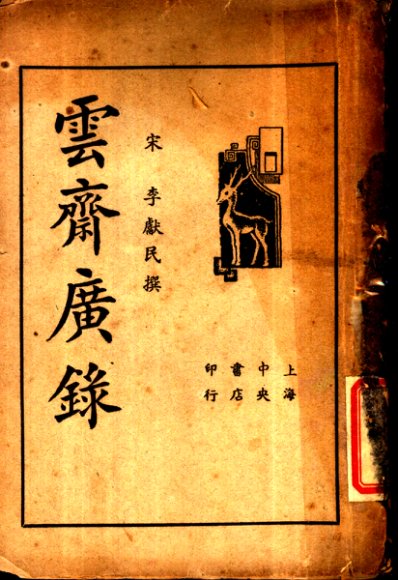 上海
中央
書店
印行
宋 李獻民撰
雲齋廣錄